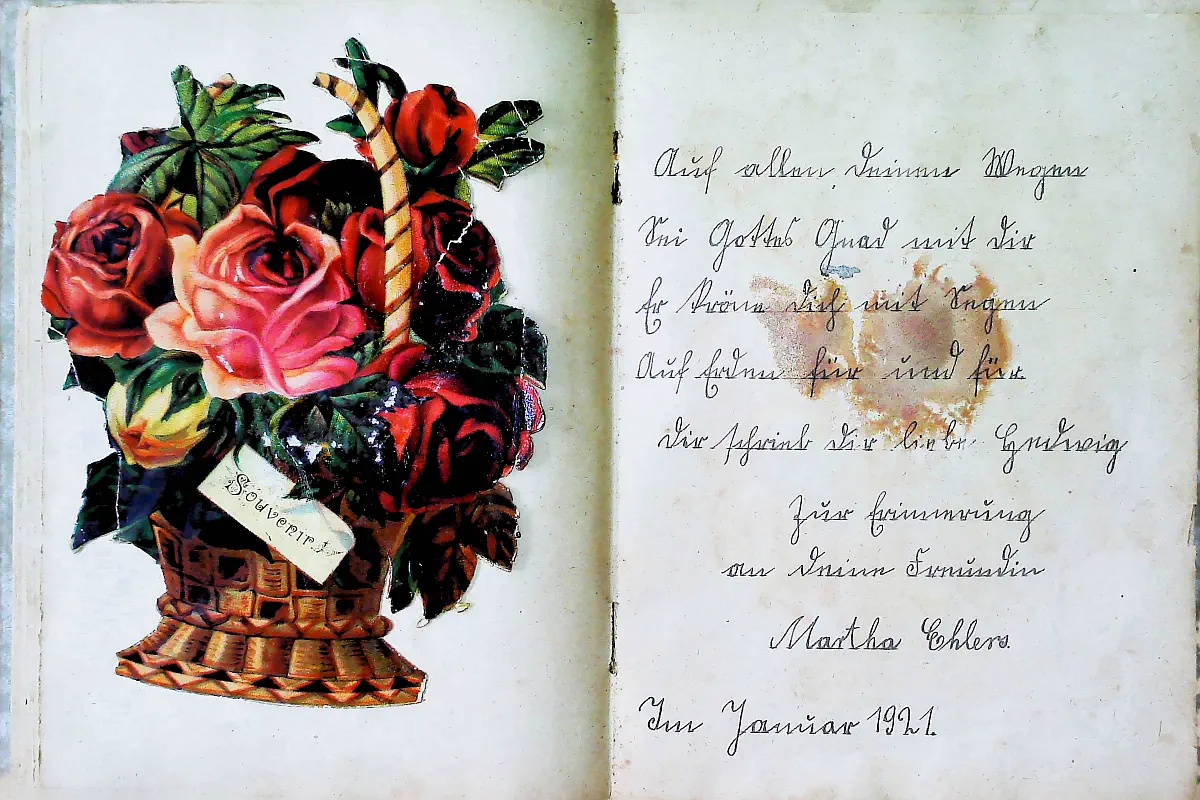 Souvenir.
Auf allen deinen Wegen
Sei Gottes Gnad mit dir
Er kröne dich mit Segen
Auf Erden für und für.
Dir schrieb dir liebe Hedwig
Zur Erinnerung
an deine Freundin
Martha Ehlers.
Im Januar 1921.